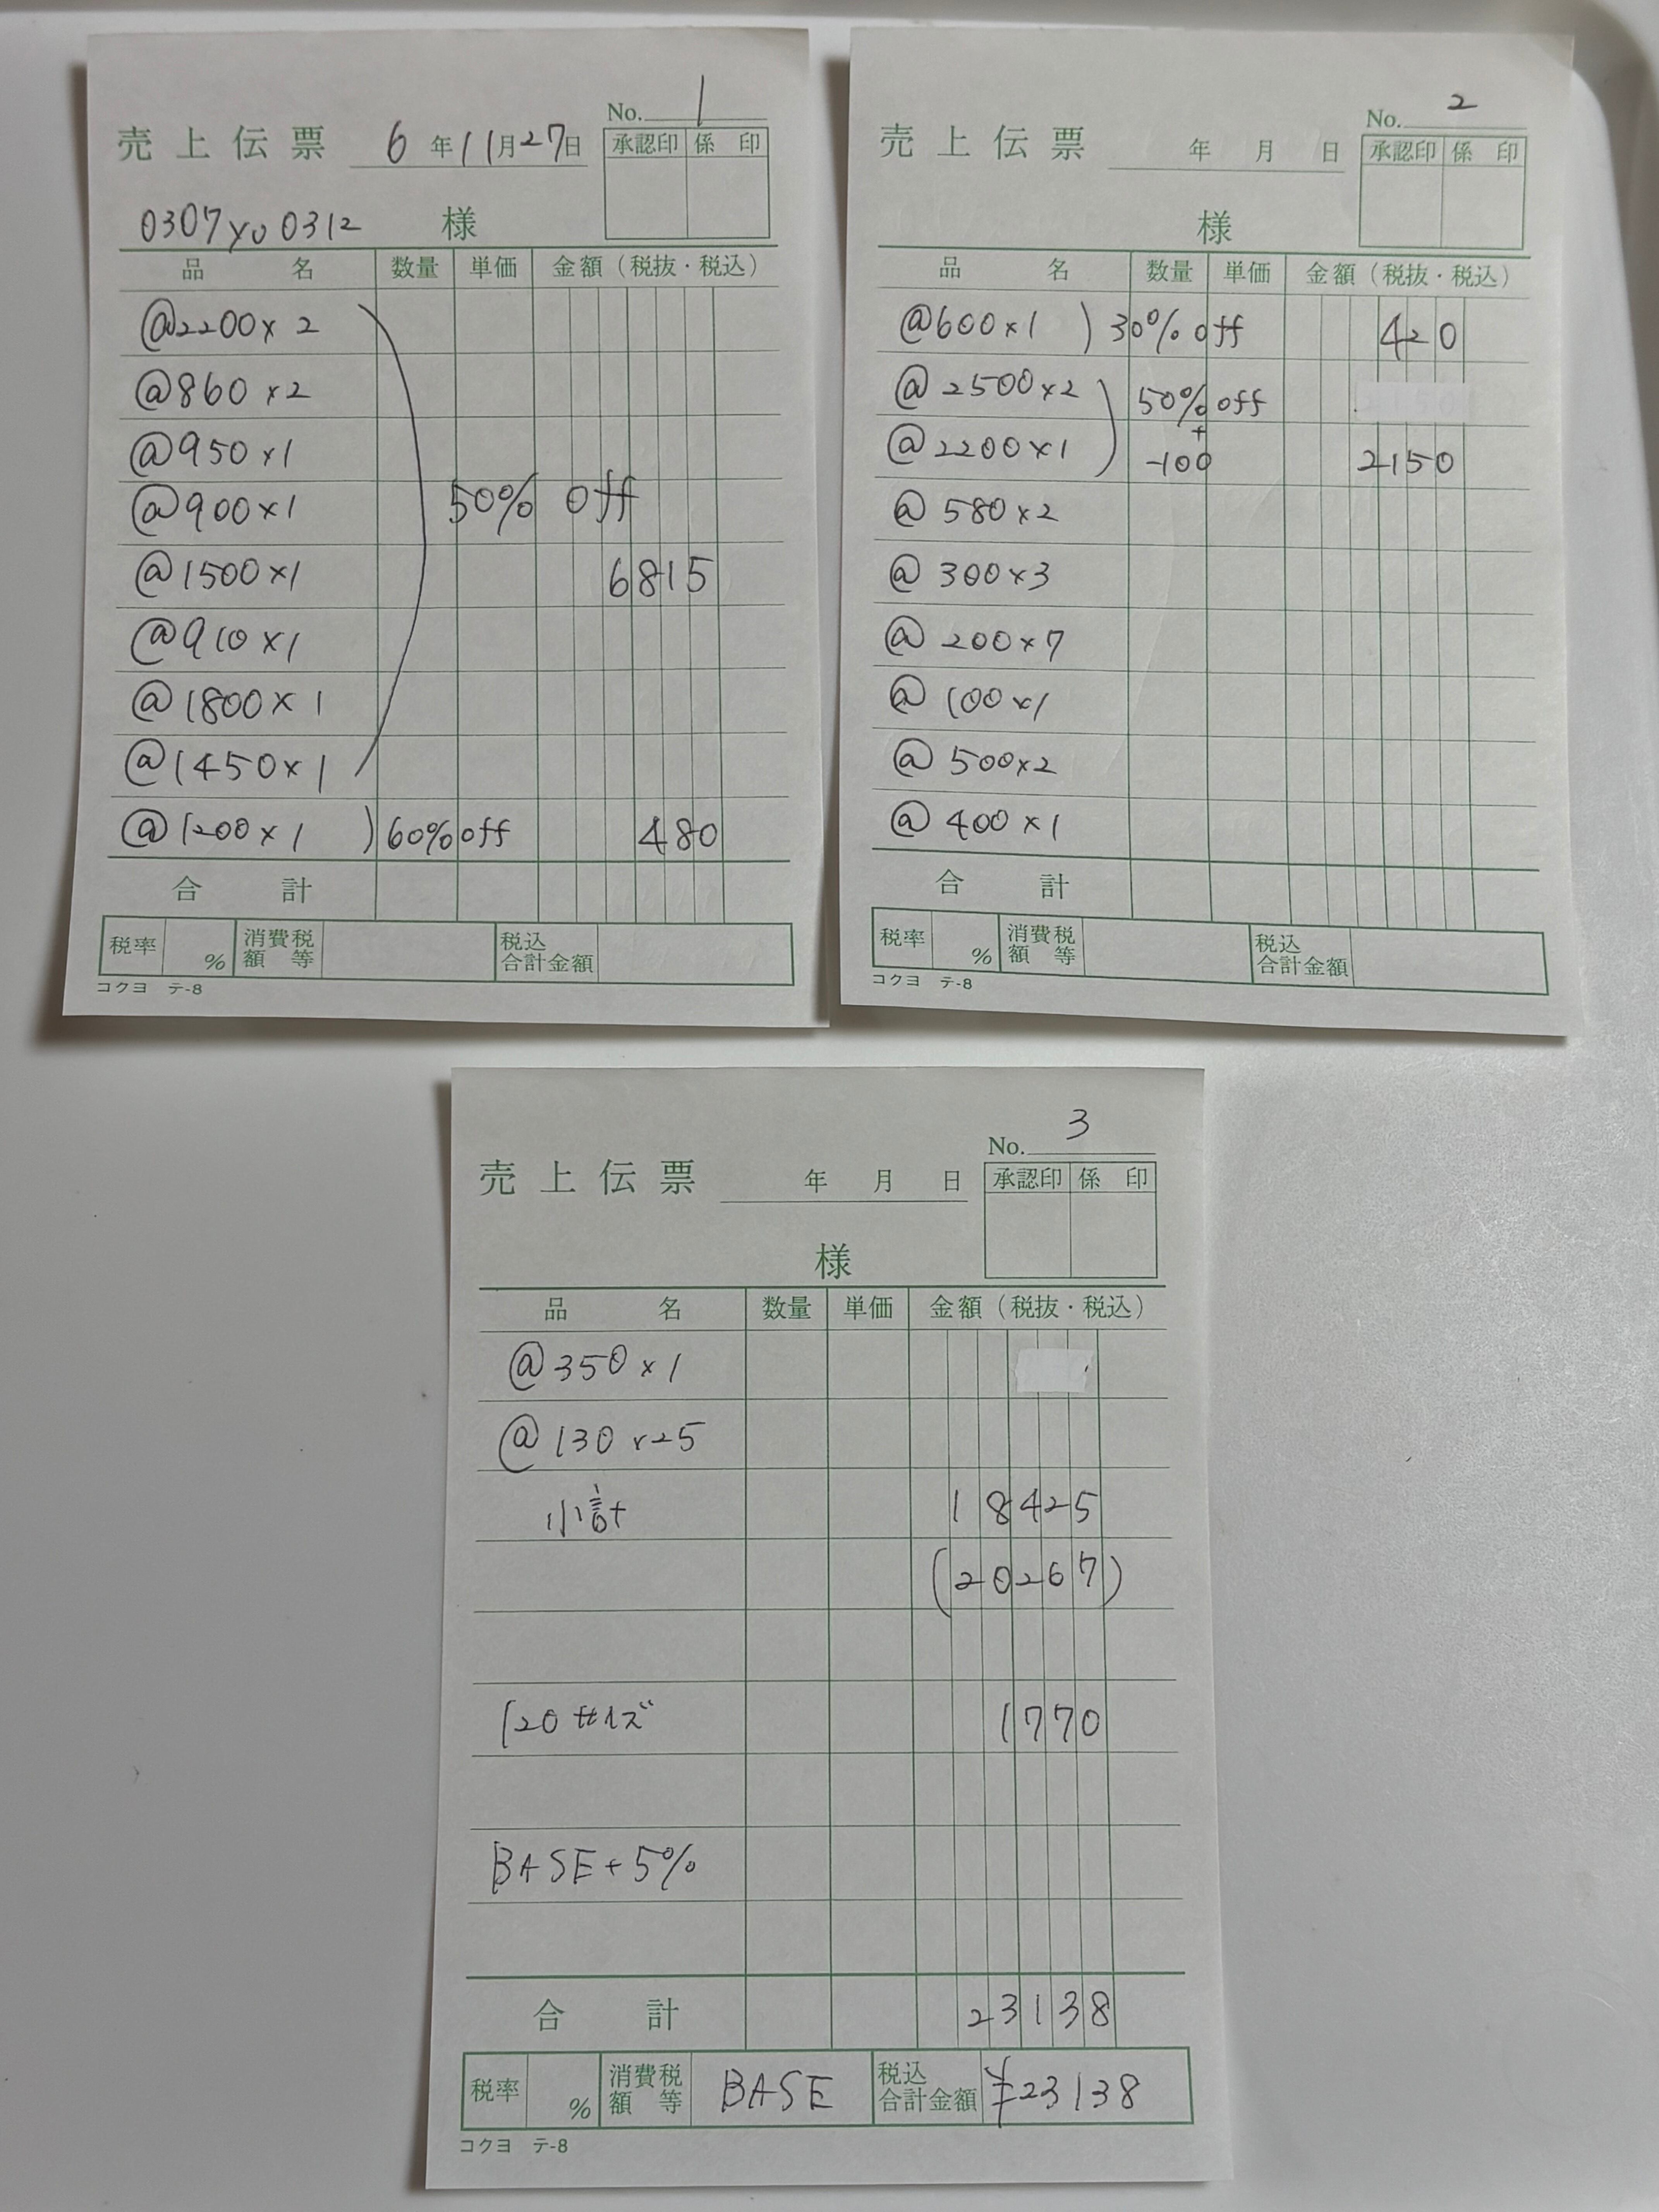 No. 1
売上伝票 6年11月27日
承認印 係印
0307yu0312 様
品名 数量 単価 金額(税抜・税込)
@2200×2
@860×2
@950×1
@900×1 50% off
@1500×1 6815
@910×1
@1800×1
@1450×1
@1200×1 )60%off 480
合計
税率 % 消費税額等 税込合計金額
コクヨ テ-8
No. 2
売上伝票 年 月 日
承認印 係印
様
品名 数量 単価 金額(税抜・税込)
@600×1 )30%off 420
@2500×2 50%off
+
@2200×1 -100 2150
@580×2
@300×3
@200×7
@100×1
@500×2
@400×1
合計
税率 % 消費税額等 税込合計金額
コクヨ テ-8
No. 3
売上伝票 年 月 日
承認印 係印
様
品名 数量 単価 金額(税抜・税込)
@350×1
@130×25
小計 18425
(20267)
120サイズ 1770
BASE+5%
合計 23138
税率 % 消費税額等 BASE 税込合計金額 ¥23138
コクヨ テ-8